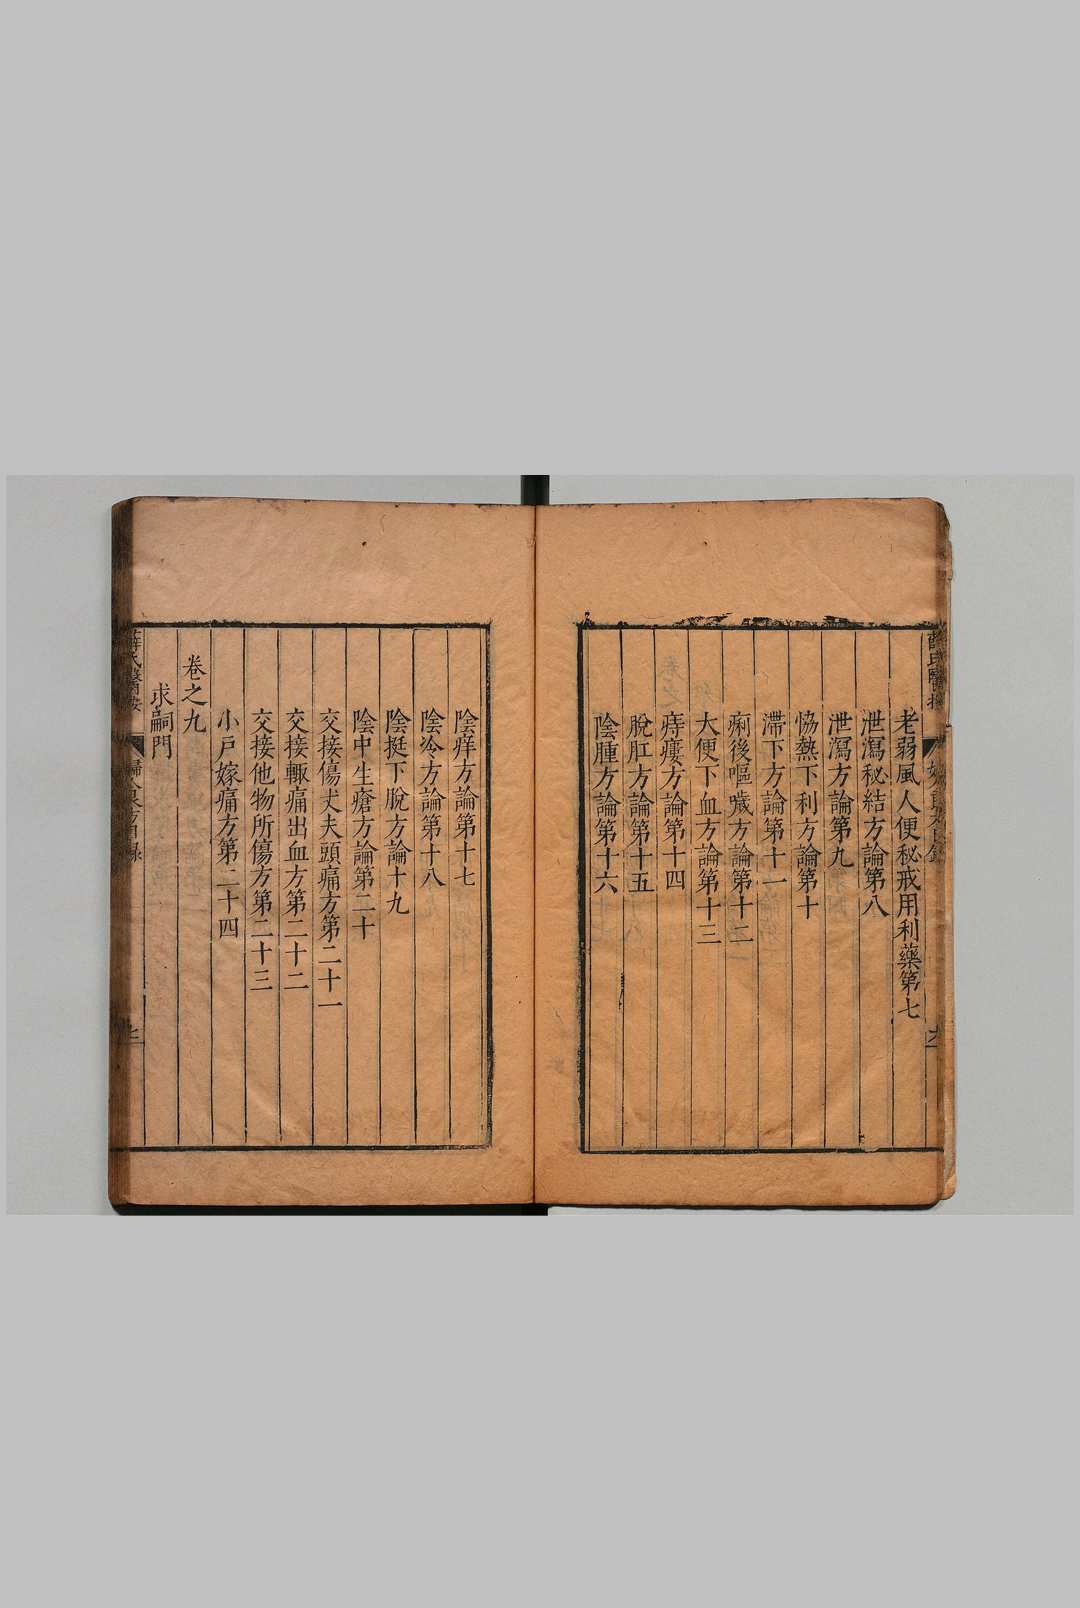 老弱風人便秘戒用利藥第七
泄瀉秘結方論第八
泄瀉方論第九
恊熱下利方論第十
滯下方論第十一
痢後嘔噦方論第十二
大便下血方論第十三
痔瘻方論第十四
脫肛方論第十五
陰腫方論第十六
陰痒方論第十七
陰冷方論第十八
陰挺下脫方論十九
陰中生瘡方論第二十
交接傷丈夫頭痛方第二十一
交接輙痛出血方第二十二
交接他物所傷方第二十三
小戶嫁痛方第二十四
卷之九
求嗣門